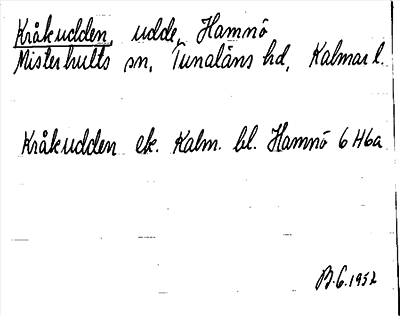 Kråkudden, udde, Hamnö
Misterhults sn, Tunaläns hd, Kalmar l.
Kråkudden ek. Kalm. bl. Hamnö 6 H6a
B.G. 1952